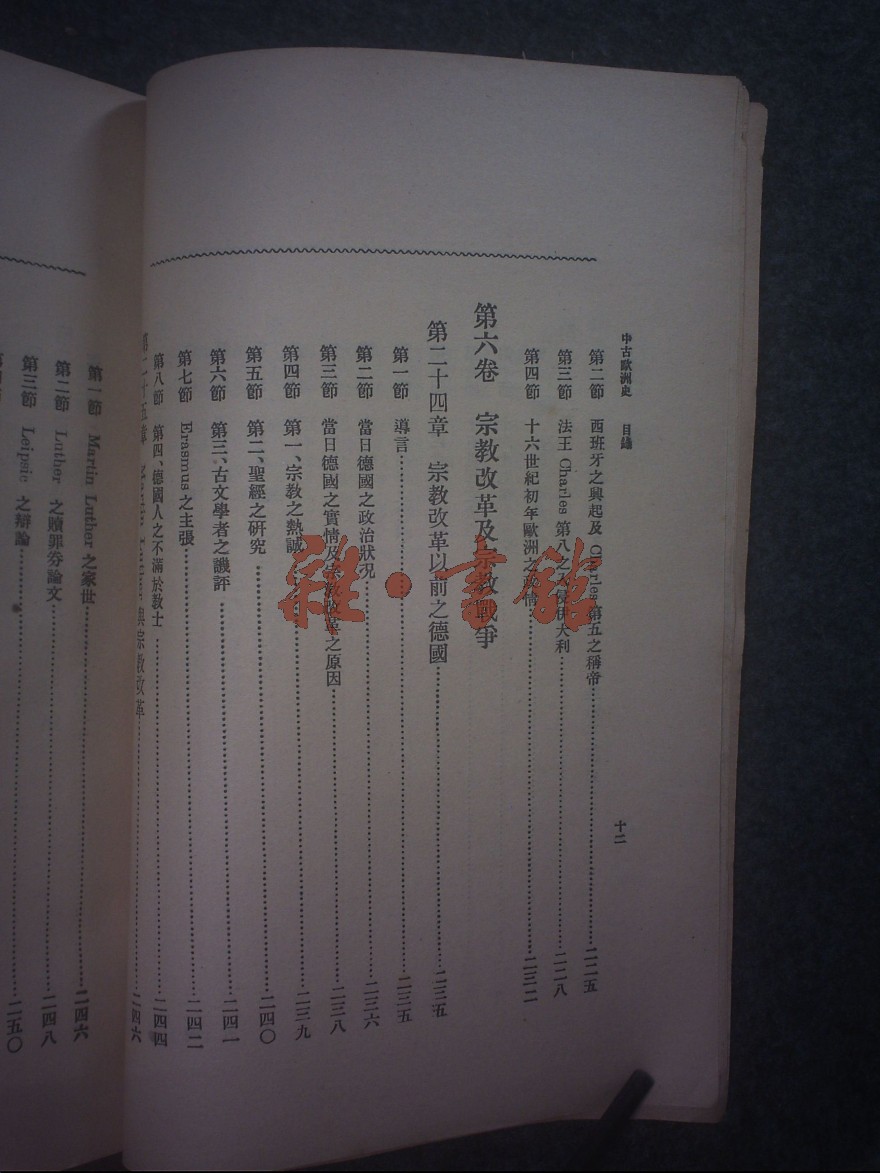 中古歐洲史 目錄 十二
第二節 西班牙之興起及 Charles 第五之稱帝 二二五
第三節 法王 Charles 第八之入侵伊大利 二二八
第四節 十六世紀初年歐洲之政情 二三二
第六卷 宗教改革及宗教戰爭
第二十四章 宗教改革以前之德國 二三五
第一節 導言 二三五
第二節 當日德國之政治狀况 二三六
第三節 當日德國之實情及宗教改革之原因 二三八
第四節 第一、宗教之熱誠 二三九
第五節 第二、聖經之研究 二四〇
第六節 第三、古文學者之譏評 二四一
第七節 Erasmus 之主張 二四二
第八節 第四、德國人之不滿於教士 二四四
第二十五章 Martin Luther 與宗教改革 二四六
第一節 Martin Luther 之家世 二四六
第二節 Luther 之贖罪券論文 二四八
第三節 Leipsic 之辯論 二五〇
雜·書館